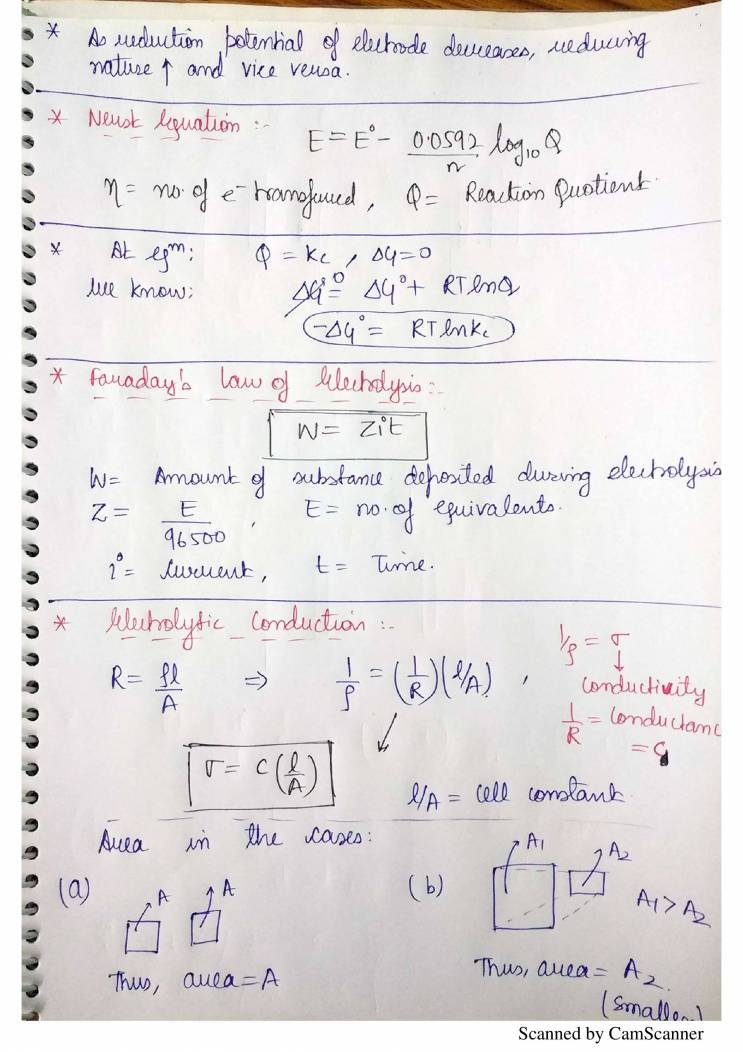 * As reduction potential of electrode decreases, reducing
nature ↑ and vice versa.
* Nernst Equation :-
E = E° - 0.0592/n log₁₀ Q
n = no. of e⁻ transferred, Q = Reaction Quotient.
* At eqᵐ; Q = Kc, ΔG = 0
We know; ΔG = ΔG° + RT ln Q
0
-ΔG° = RT ln Kc
* Faraday's Law of Electrolysis :-
W = Zit
W = Amount of substance deposited during electrolysis
Z = E/96500, E = no. of equivalents.
i = Current, t = Time.
* Electrolytic Conduction :-
R = ρl/A ⇒ 1/ρ = (1/R)(l/A),
1/ρ = σ
↓
Conductivity
1/R = Conductanc
= C
σ = C(l/A)
l/A = cell constant
Area in the cases:
(a) A A
Thus, area = A
(b) A₁ A₂
A₁ > A₂
Thus, area = A₂
(Smaller)
Scanned by CamScanner